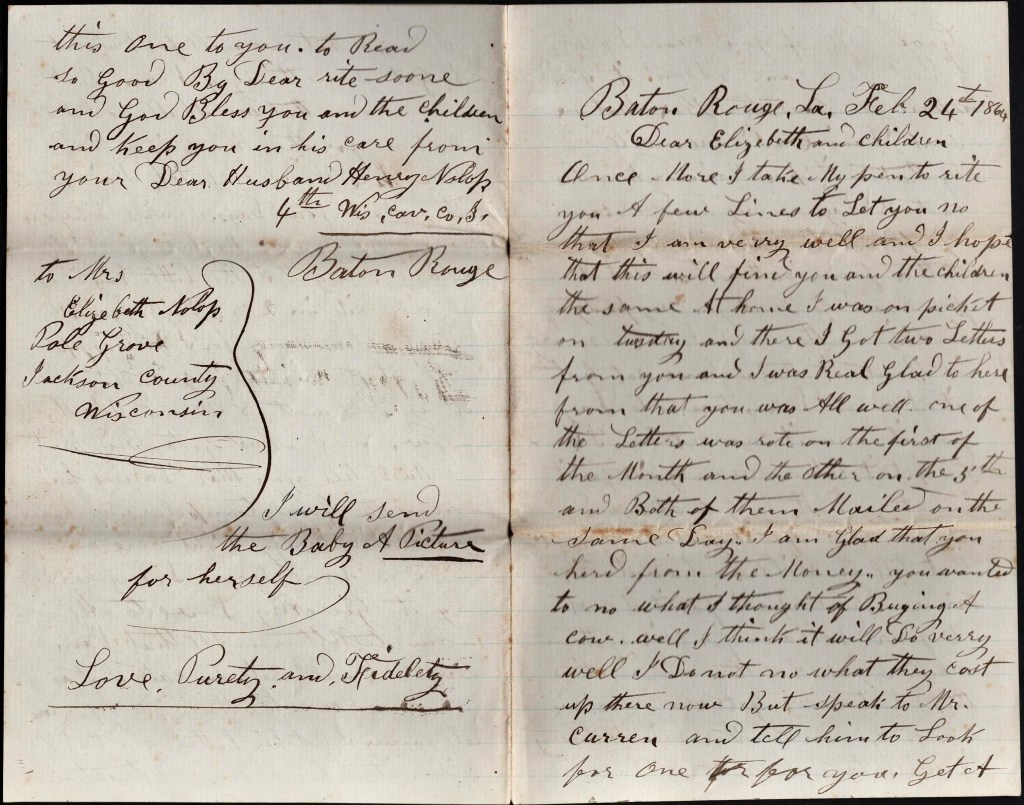 this one to you. to Read
so Good By Dear rite soone
and God Bless you and the children
and keep you in his care from
your Dear Husband Henry Nolop
4th Wis, Cav, Co, I,
Baton Rouge
to Mrs
Elizebeth Nolop
Pole Grove
Jackson County
Wisconsin
I will send
the Baby A Picture
for herself
Love, Purety, and, Fidelety
Baton Rouge, La, Feb. 24th 1864
Dear Elizebeth and Children
Once More I take My pen to rite
you A few Lines to Let you no
that I am verry well and I hope
that this will find you and the children
the same At home I was on picket
on tuesday and there I Got two Letters
from you and I was Real Glad to here
from that you was All well. one of
the Letters was rote on the first of
the Month and the other on the 5th
and Both of them Mailed on the
same Day. I am Glad that you
herd from the Money,, you wanted
to no what I thought of Buying A
cow. well I think it will Do verry
well I Do not no what they Cost
up there now But speak to Mr.
Curren and tell him to Look
for one for you. Get A